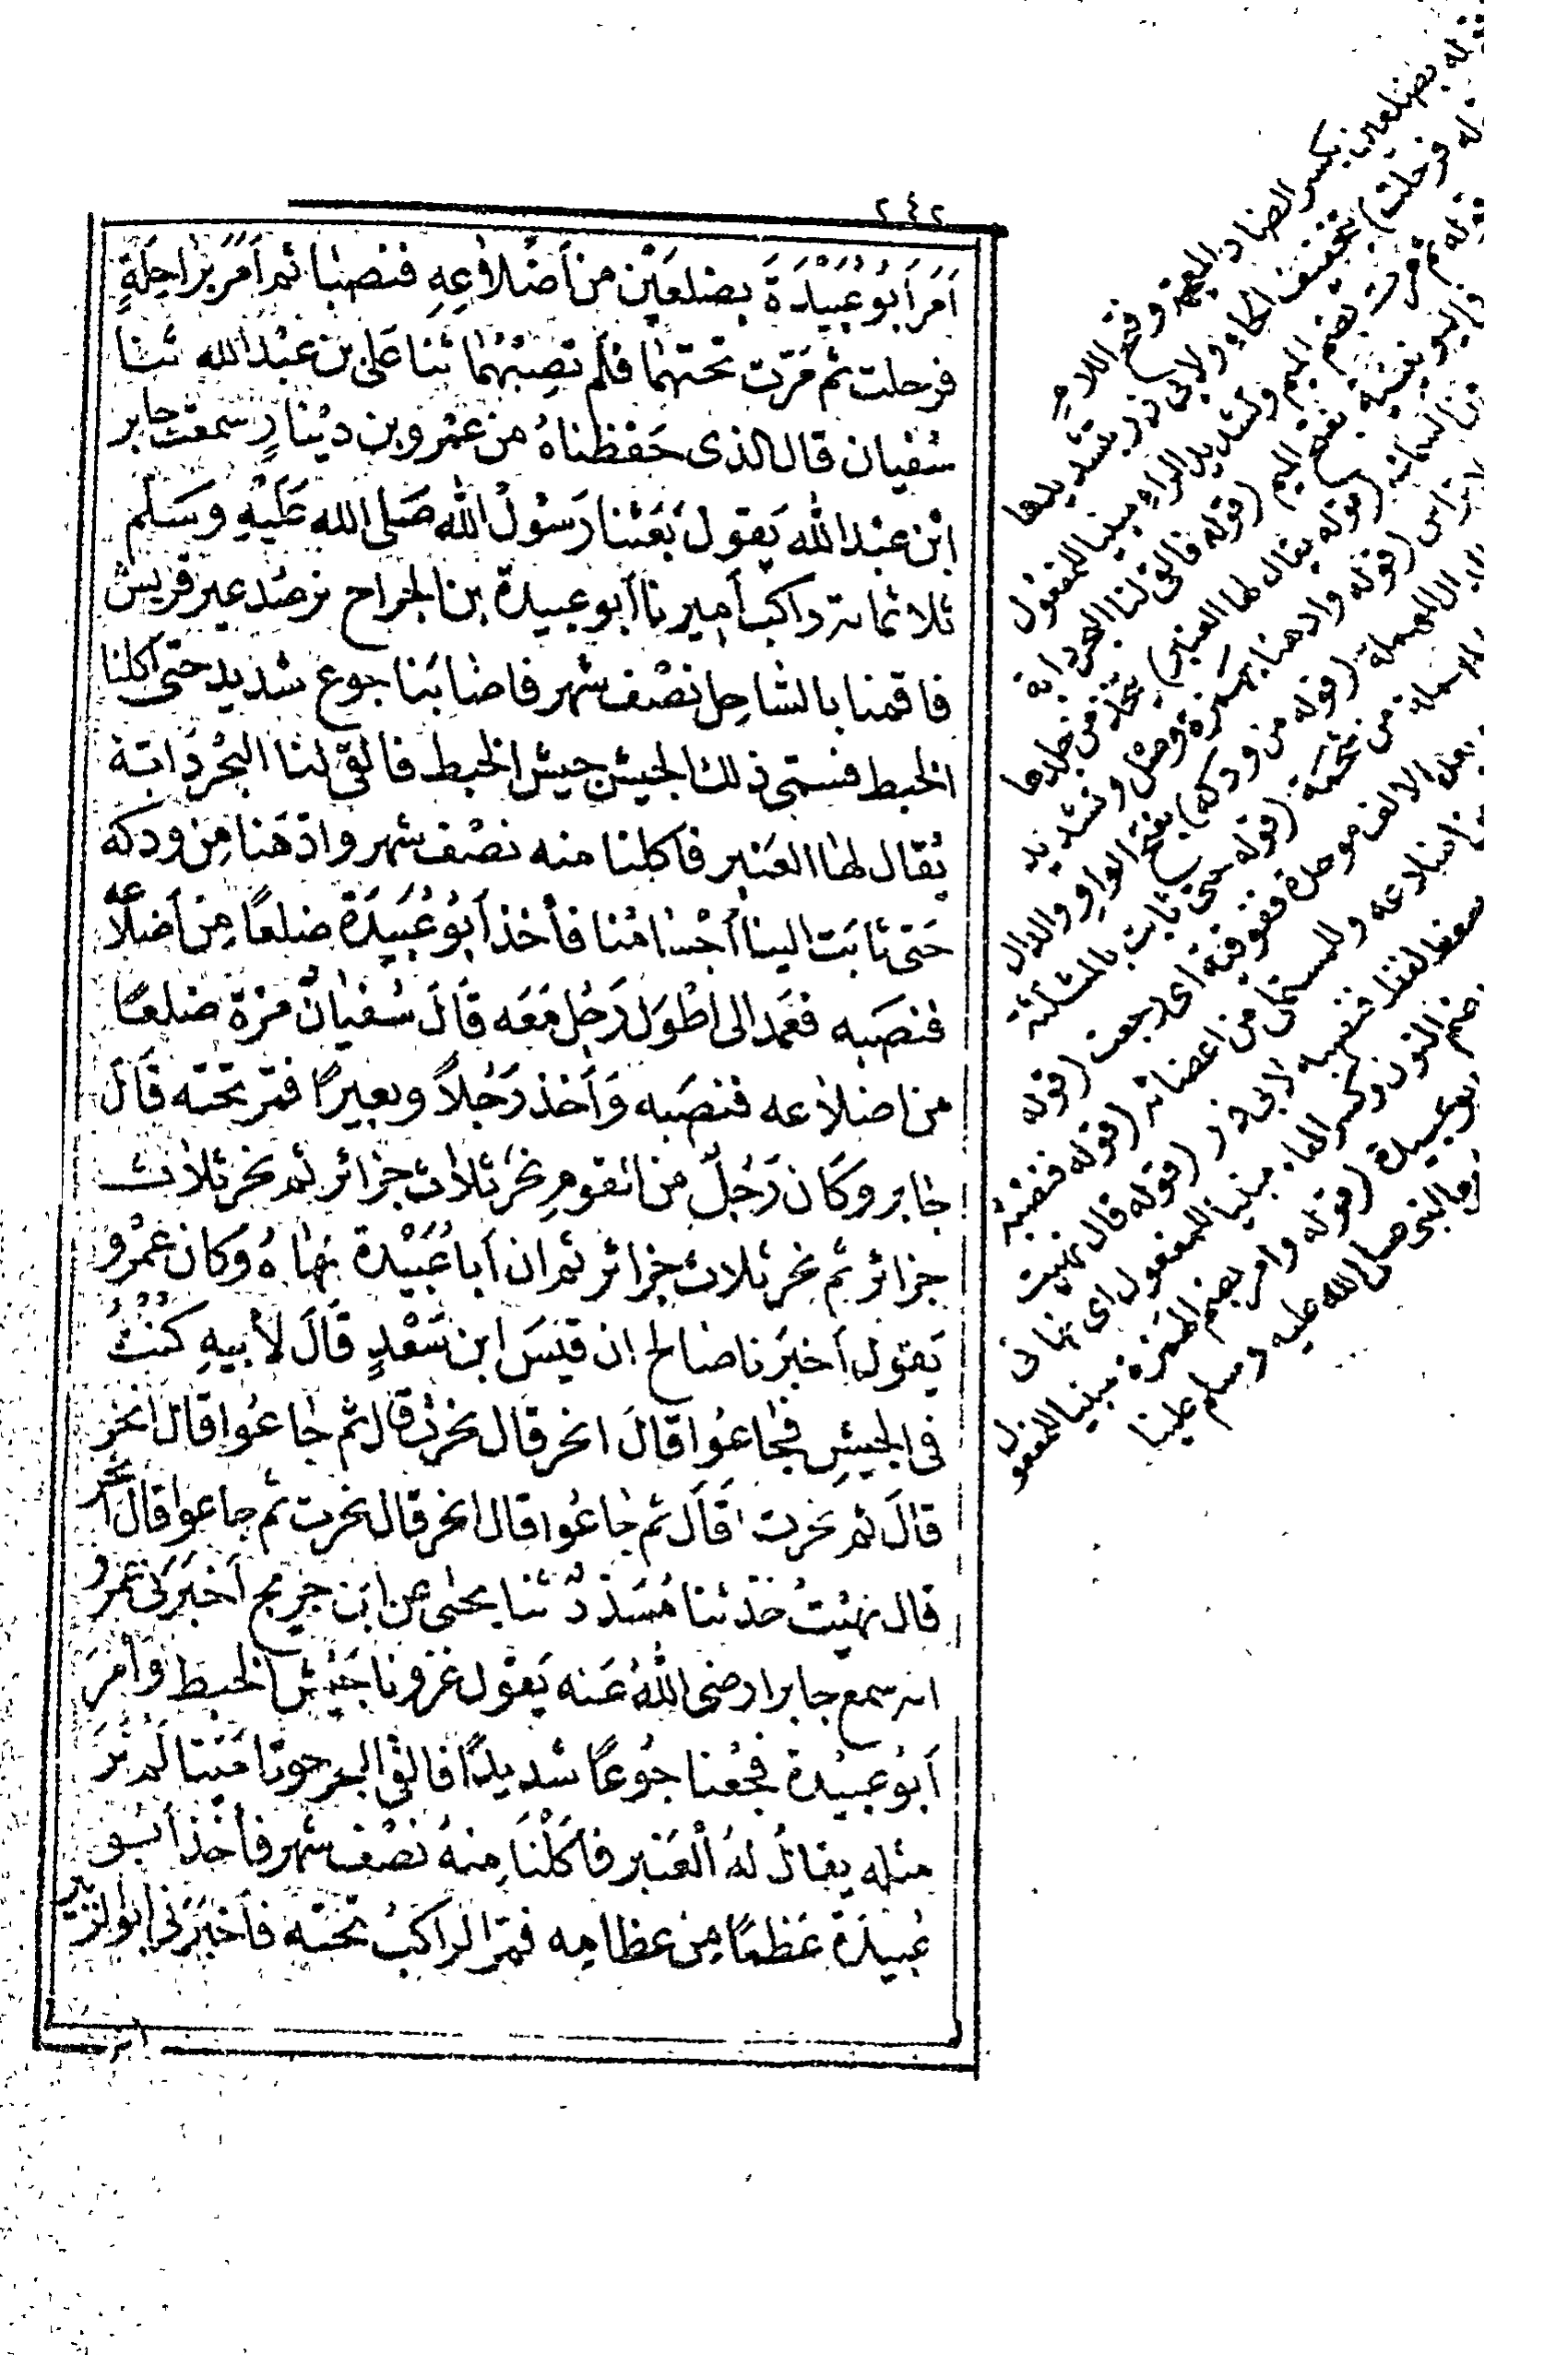 ٢٤٢
اَمَرَ اَبُو عُبَيْدَةَ بضلعَيْن من اَضْلاَعِهِ فنصبا ثم اَمَرَ بِرَاحِلَةٍ
فرحلت ثم مَرّت تحتهما فلَم تصِبْهُمَا ثنا عَلى بن عبْد الله ثنا
سُفيان قال الذى حَفظناهُ من عَمْرو بن دِيْنارٍ سمعْت جابر
ابْن عبْد الله يَقول بَعَثنا رَسُولُ الله صَلى الله عَليْهِ وَسَلم
ثلاثمائة راكب اَمِيرنا اَبو عبيدة بن الجراح نرصُد عير قريش
فاقمنا بالساحِل نصْف شهر فاصابَنا جوع شديد حتى اكلنا
الخبط فسمّى ذلك الجيش جيش الخبط فالقى لنا البحْر دَابّة
يُقال لها العَنبر فاكلنا منه نصْف شهر وادّهَنا مِن ودكه
حَتى ثابَت الينا اَجْسامُنا فأخذ اَبُو عُبَيدَة ضلعًا مِن اَضلاعه
فنصَبه فعَمد الى اَطْوَل رَجُل مَعَه قَالَ سُفيان مرّة ضلعًا
من اضلاعه فنصَبه وَاَخذ رَجُلاً وبعيرًا فمرّ تحته قَالَ
جابر وكَان رَجُلٌ من القومِ نحَر ثلاث جزائر ثم نحر ثلاث
جزائر ثم نحر ثلاث جزائر ثم ان اَبا عُبَيْدة نهاهُ وَكان عَمْرو
يَقول اَخبَرنا صالح ان قيسَ ابن سَعْدٍ قَالَ لأبيهِ كنْتُ
فى الجيشِ فجاعُوا قالَ انحر قال نحرْت قال ثم جاعُوا قال انحر
قالَ ثم نحرت قَالَ ثم جاعُوا قال انحر قال نحرت ثم جاعوا قال انحر
قال نهيْتُ حَدثنا مُسَدّدٌ ثنا يحيى عن ابن جريج اَخبَرَنى عَمرو
انه سمع جابرا رضى اللهُ عَنه يَقول غزونا جَيْش الخبط وَاُمّرَ
اَبُو عبيْدة فجُعْنا جُوعًا شديدًا فالقى البحر حوتا مَيّتا لَم نَرَ
مثله يقالُ لهُ العَنبر فاَكَلْنَا مِنهُ نصْف شهر فاَخذ اَبو
عُبيدَة عَظمًا مِن عظامِه فمرّ الراكبُ تحته فاَخبَرَنى ابو الزبير
بضلعين بكسر الضاد المعجمة وفتح اللام
فرحلت) بتخفيف الحاء ولابى ذر بتشديدها
ثم مرت بضم الميم وتشديد الراء مبنيا للمفعول
بفتح الميم (قوله فالقى لنا البحر دابة
(قوله يقال لها العنبر) يتخذ من جلدها
(قوله وادهنا بهمزة وصل وتشديد
المهملة (قوله من ودكه) بفتح الواو والدال
من شحمه (قوله حتى ثابت بالمثلثة
الالف موحدة ففوقية اى رجعت (قوله
اضلاعه وللمستملى من اعضائه (قوله فنصبه
سقط لفظ فنصبه لابى ذر (قوله قال نهيت
بضم النون وكسر الهاء مبنيا للمفعول اى نهانى
ابو عبيدة (قوله وامر بضم الهمزة مبنيا للمفعول
النبى صلى الله عليه وسلم علينا